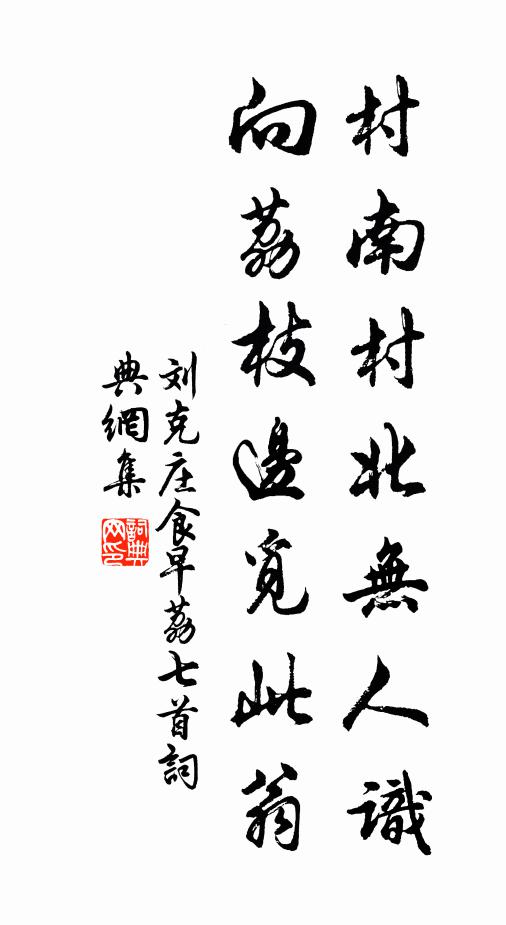 村南村北無人識
向荔枝邊覓此翁
刘克庄食早荔七首詞
典網集
詞典网印